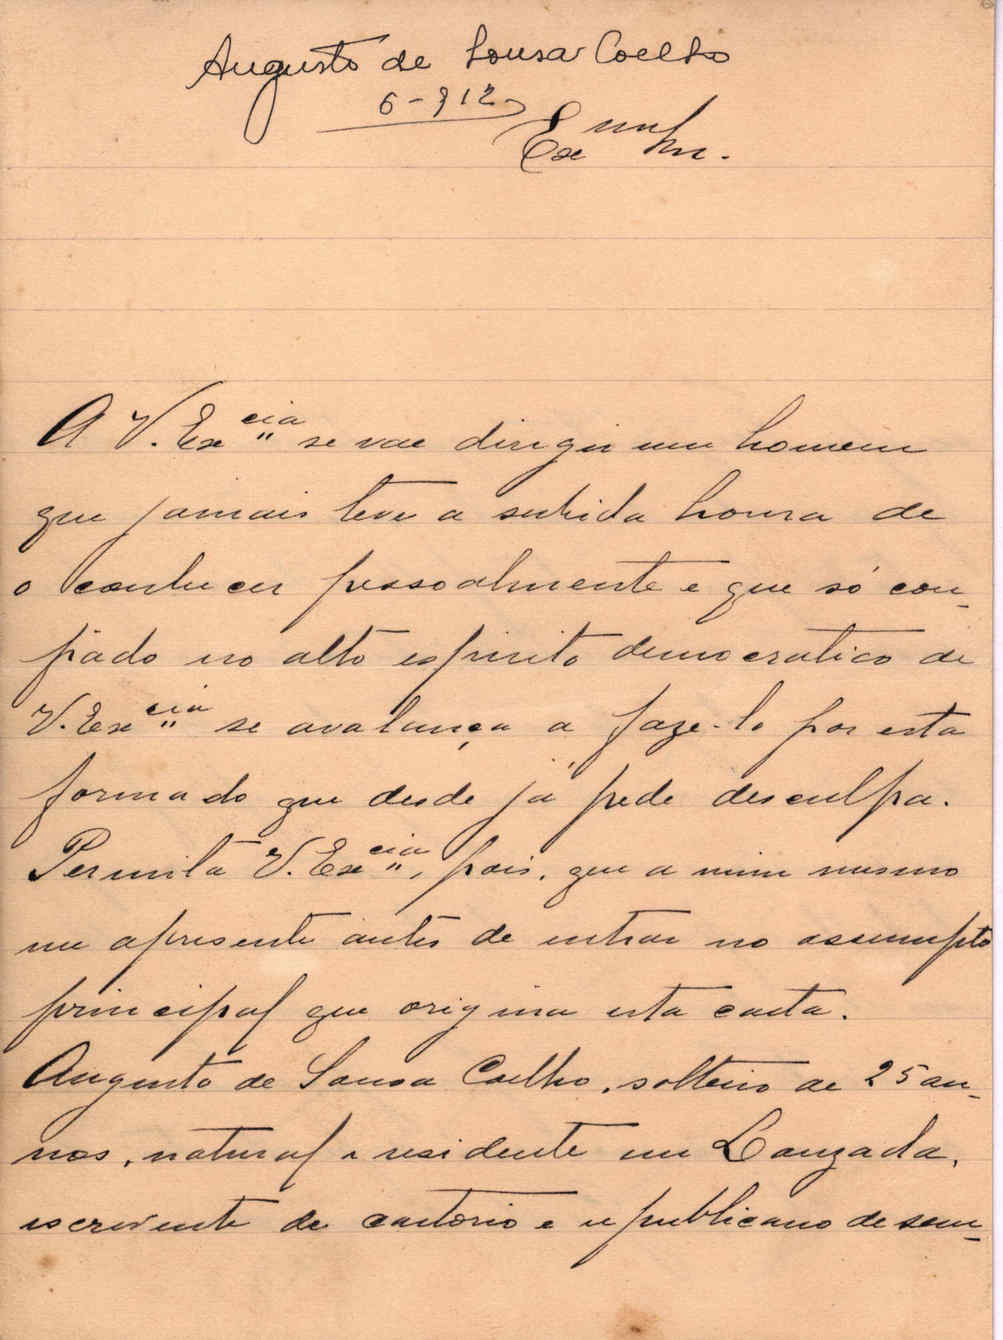 Augusto de Sousa Coelho
6-912
Ex mo Snr.
A V. Ex cia se vae dirigir um homem
que jamais teve a subida honra de
o conhecer pessoalmente e que só con-
fiado no alto espirito democratico de
V. Ex cia se avalança a faze-lo por esta
forma do que desde já pede desculpa.
Permita V. Ex cia, pois, que a mim mesmo
me apresente antes de entrar no assumpto
principal que origina esta carta.
Augusto de Sousa Coelho, solteiro de 25 an-
nos, natural e residente em Louzada,
escrevente de cartorio e republicano de sem-